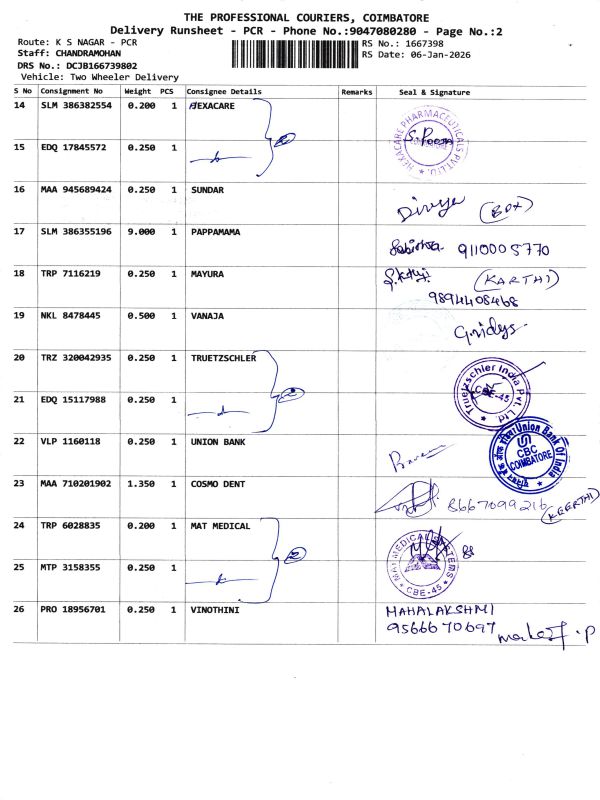 THE PROFESSIONAL COURIERS, COIMBATORE
Delivery Runsheet - PCR - Phone No.:9047080280 - Page No.:2
Route: K S NAGAR - PCR
Staff: CHANDRAMOHAN
DRS No.: DCJB166739802
Vehicle: Two Wheeler Delivery
RS No.: 1667398
RS Date: 06-Jan-2026
S No Consignment No Weight PCS Consignee Details Remarks Seal & Signature
14 SLM 386382554 0.200 1 HEXACARE
HEXACARE PHARMACEUTICALS PVT.LTD. S. Pooja
15 EDQ 17845572 0.250 1
16 MAA 945689424 0.250 1 SUNDAR Divya
17 SLM 386355196 9.000 1 PAPPAMAMA 9110005770
18 TRP 7116219 0.250 1 MAYURA (KARTHI)
9894408468
19 NKL 8478445 0.500 1 VANAJA
20 TRZ 320042935 0.250 1 TRUETZSCHLER
Truetzschler India Pvt. Ltd. CBE-45
21 EDQ 15117988 0.250 1
22 VLP 1160118 0.250 1 UNION BANK
Union Bank Of India CBC COIMBATORE
23 MAA 710201902 1.350 1 COSMO DENT 8667099216 (KEERTHI)
24 TRP 6028835 0.200 1 MAT MEDICAL
MAT MEDICAL SYSTEMS CBE-45
25 MTP 3158355 0.250 1
26 PRO 18956701 0.250 1 VINOTHINI MAHALAKSHMI
9566670697